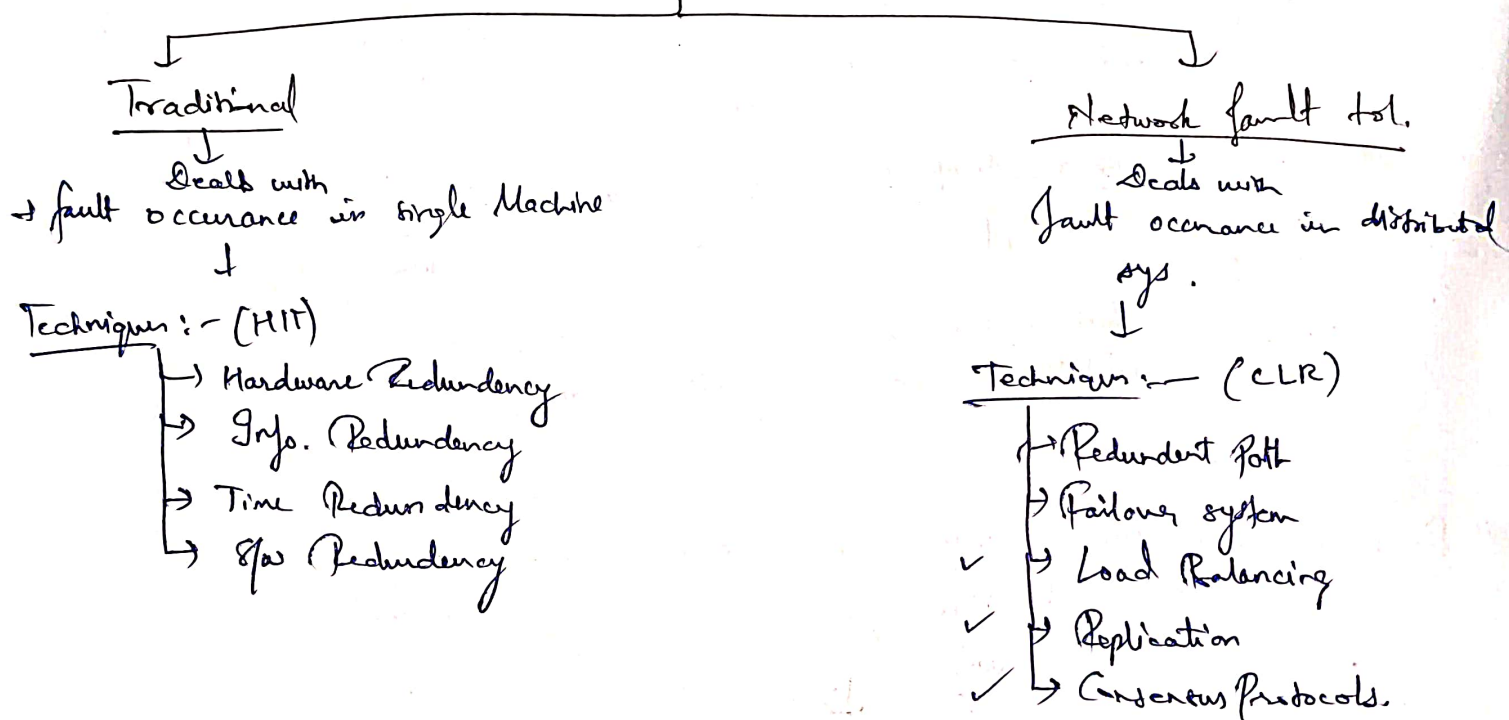 Traditional
Deals with
→ fault occurance in single Machine
Techniques :- (HIT)
→ Hardware Redundency
→ Info. Redundency
→ Time Redundency
→ S/w Redundency
Network fault tol.
Deals with
fault occurance in distributed
sys.
Techniques :- (CLR)
→ Redundent Path
→ Failover system
✓ → Load Balancing
✓ → Replication
✓ → Consensus Protocols.